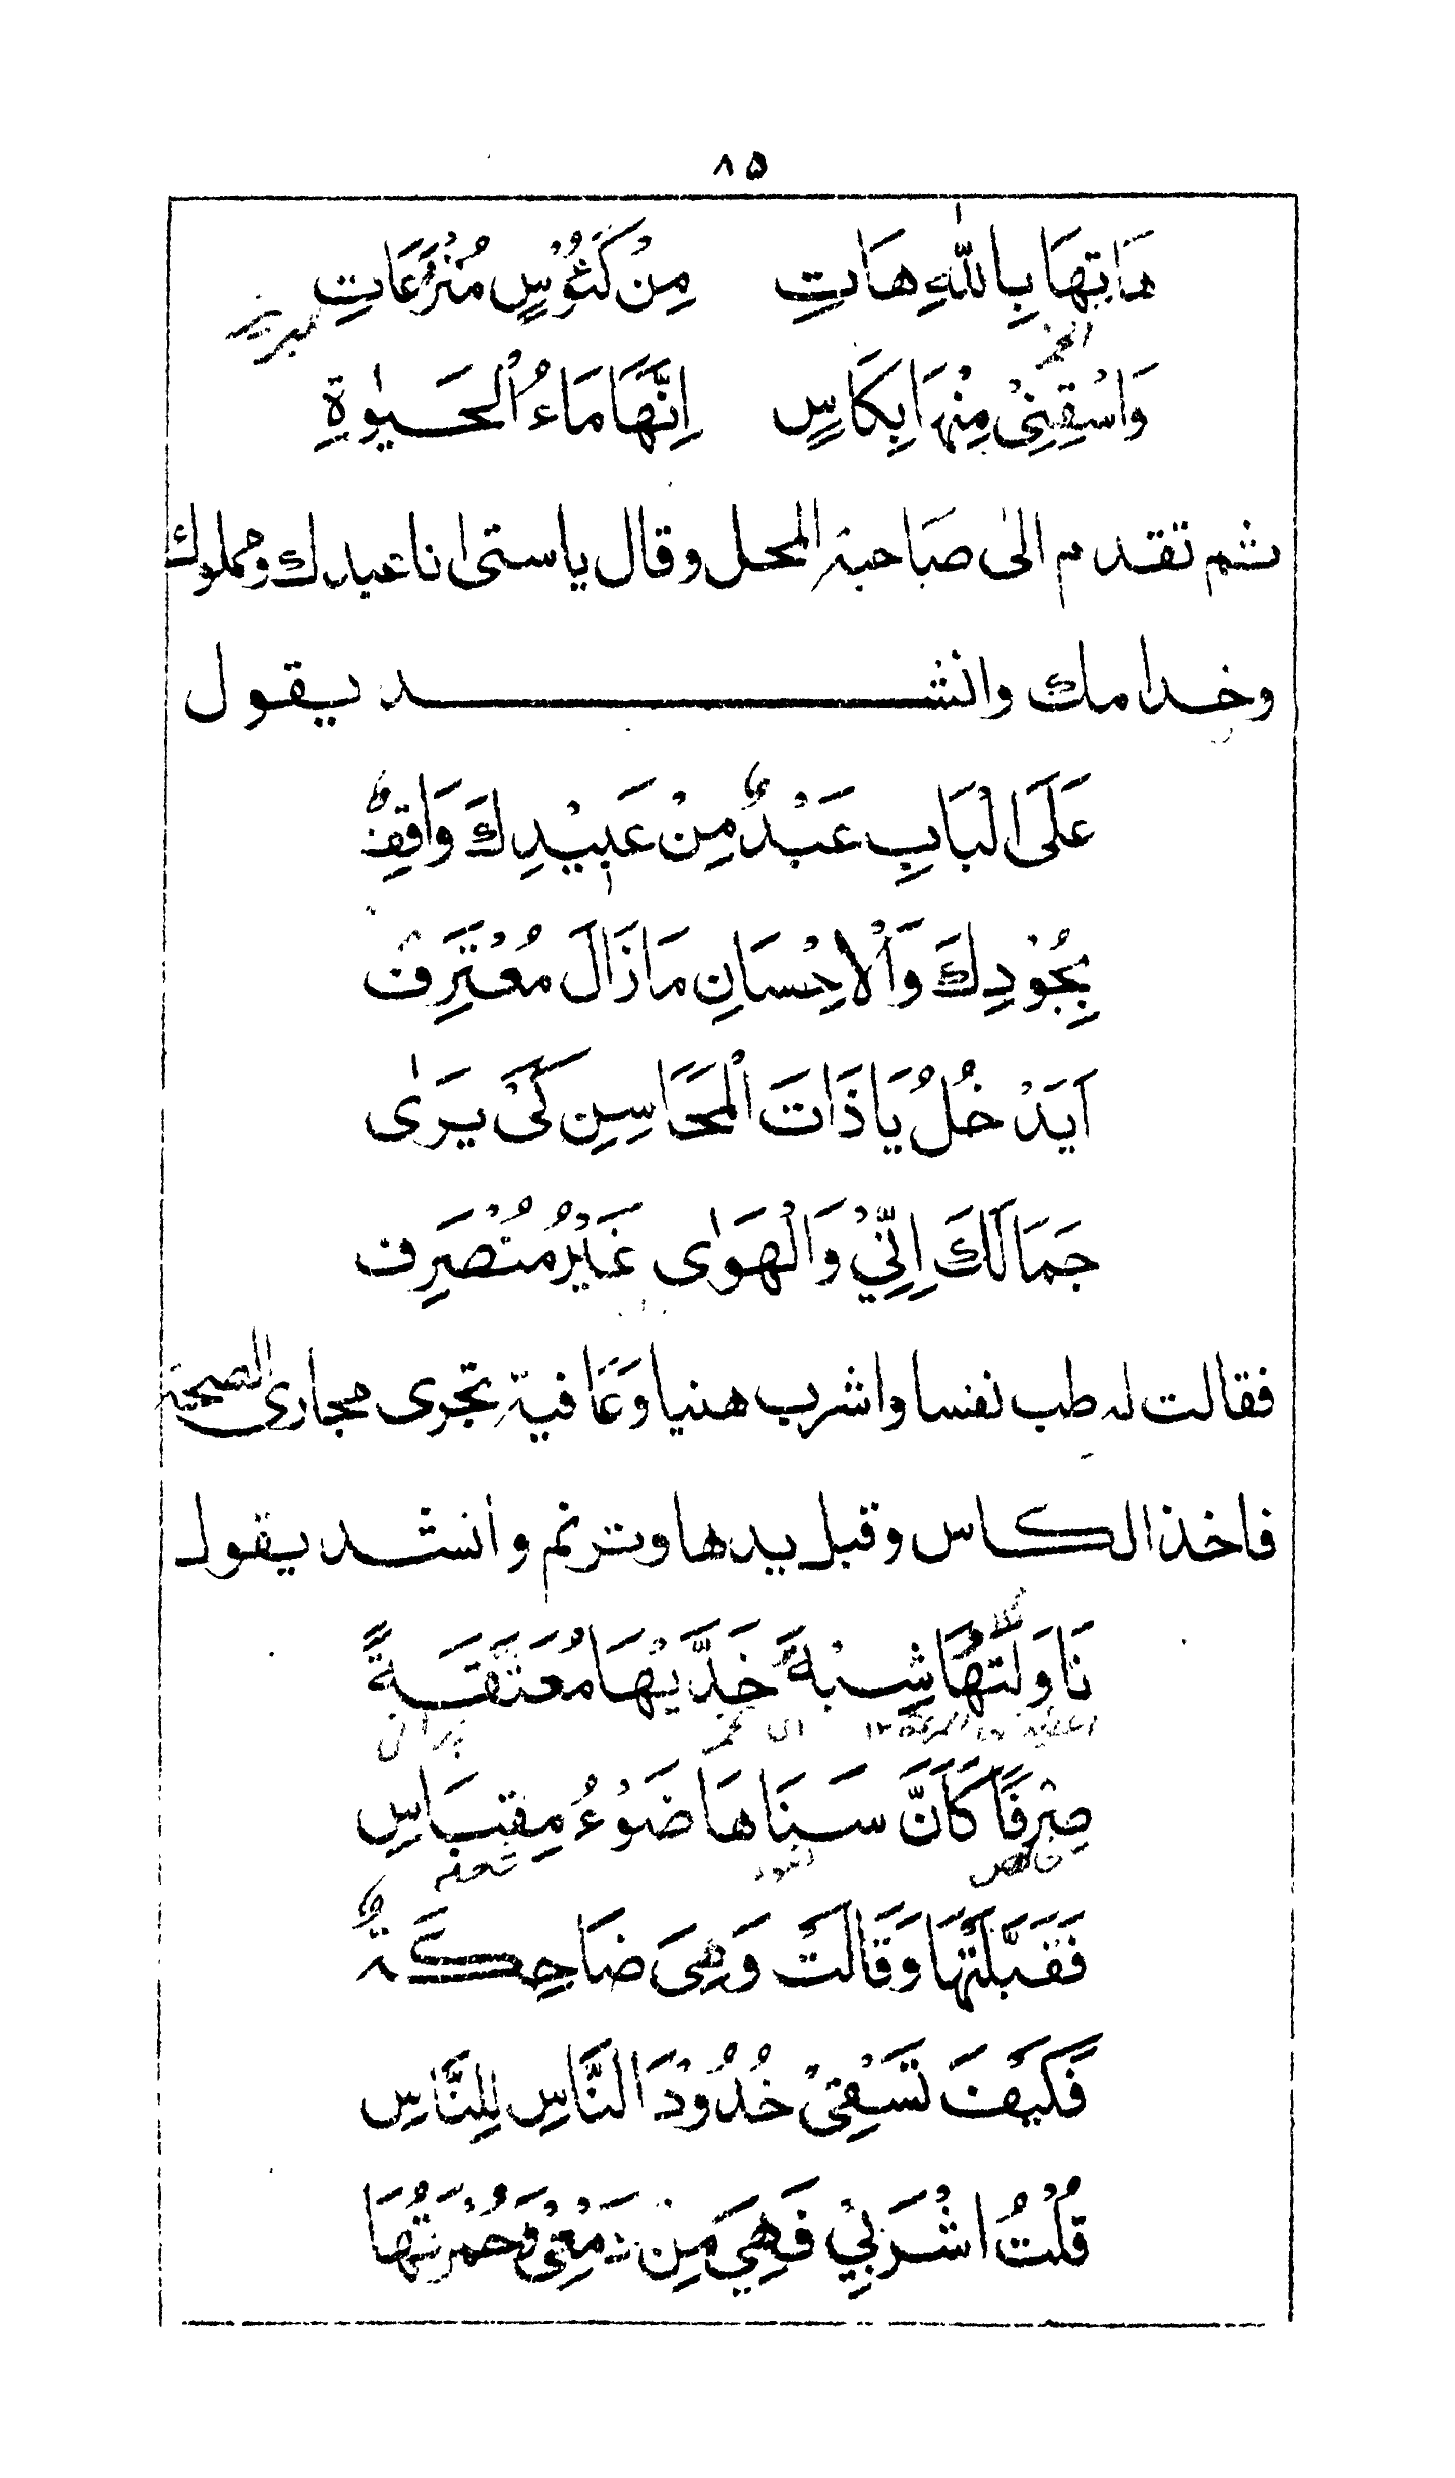 ٨٥
هَاتِهَا بِاللّٰهِ هَاتِ مِنْ كَئُوْسٍ مُتْرَعَاتِ
الخمر لبريز
وَاسْقِنِيْ مِنْهَا بِكَاسٍ اِنَّهَا مَاءُ الْحَيٰوةِ
ثم تقدم الى صاحبة المحل وقال ياستى انا عبدك ومملوك
وخدامك وانشد يقول
عَلَى الْبَابِ عَبْدٌ مِنْ عَبِيْدِكَ وَاقِفْ
بِجُوْدِكَ وَالْاِحْسَانِ مَازَالَ مُعْتَرِفْ
اَيَدْخُلُ يَاذَاتَ الْمَحَاسِنِ كَىْ يَرٰى
جَمَالَكَ اِنِّيْ وَالْهَوٰى غَيْرُ مُنْصَرِف
فقالت له طب نفسا واشرب هنيا وعَافية تجرى مجارى الصحية
فاخذ الكاس وقبل يدها وترنم وانشد يقول
نَاوَلْتُهَا شِبْهَ خَدَّيْهَا مُعَتَّقَةً
اى خمر
صِرْفًا كَاَنَّ سَنَاهَا ضَوْءُ مِقْبَاسِ
خالص
فَقَبَّلَتْهَا وَقَالَتْ وَهِىَ ضَاحِكَةٌ
فَكَيْفَ تَسْقِىْ خُدُوْدَ النَّاسِ لِلنَّاسِ
قُلْتُ اشْرَبِيْ فَهِيَ مِنْ دَمْعِىْ وَحُمْرَتُهَا